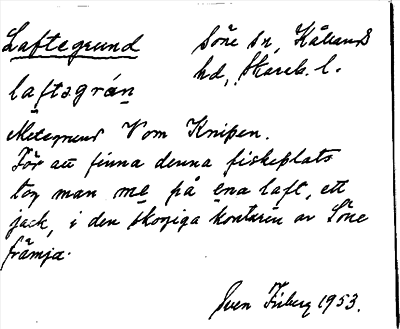 Laftegrund
Söne sn, Kållands
hd, Skarab. l.
laftəgrán
Metegrund V om Knipen.
För att finna denna fiskeplats
tog man me på ena laft, ett
jack, i den skogiga konturen av Söne
främja.
Sven Friberg 1953.